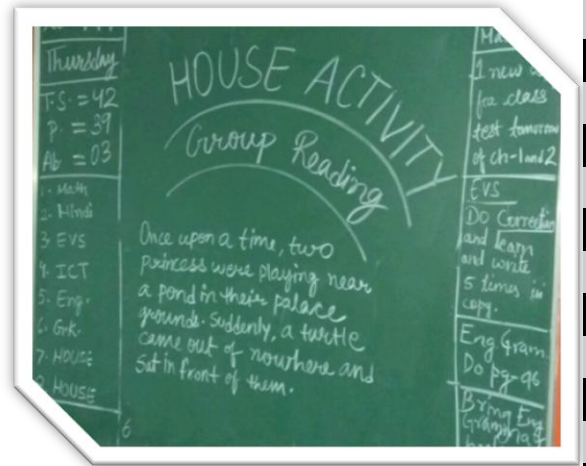 Thursday
T.S. = 42
P. = 39
Ab = 03
1. Math
2. Hindi
3. EVS
4. ICT
5. Eng.
6. G.K.
7. HOUSE
HOUSE
HOUSE ACTIVITY
Group Reading
Once upon a time, two
princess were playing near
a pond in their palace
grounds. Suddenly, a turtle
came out of nowhere and
sat in front of them.
6
1 new
for class
test tomorrow
of ch-1 and 2
EVS
Do Correction
and learn
and write
5 times in
copy.
Eng Gram
Do pg-96
Bring Eng